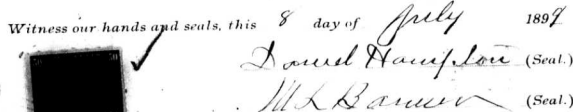 Witness our hands and seals, this 8 day of July 1899
Daniel Hampton (Seal.)
(Seal.)